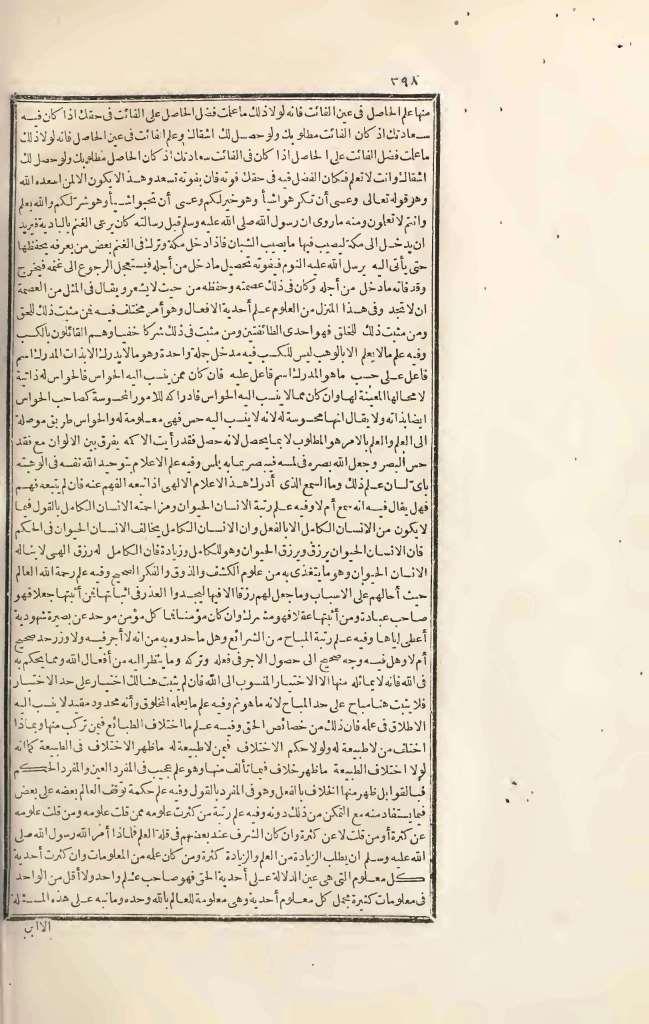 ٣٩٨
منها علم الحاصل فى عين الفائت فانه لولا ذلك ما علمت فضل الحاصل على الفائت فى حقك اذا كان فيه
سعادتك اذ كان الفائت مطلوبك ولو حصل لك اشقاك وعلم الفائت فى عين الحاصل فانه لولا ذلك
ما علمت فضل الفائت على الحاصل اذا كان فى الفائت سعادتك اذ كان الحاصل مطلوبك ولو حصل لك
اشقاك وانت لا تعلم فكان الفضل فيه فى حقك فوته فان بفوته تسعد وهذا لا يكون الا لمن اسعده الله
وهو قوله تعالى وعسى أن تكرهوا شيأ وهو خير لكم وعسى أن تحبوا شيأ وهو شر لكم والله يعلم
وانتم لا تعلمون ومنه ما روى ان رسول الله صلى الله عليه وسلم قبل رسالته كان يرعى الغنم بالبادية فيريد
ان يدخل الى مكة ليصيب فيها ما يصيب الشبان فاذا دخل مكة وترك فى الغنم بعض من يعرفه يحفظها
حتى يأتى اليه يرسل الله عليه النوم فيفوته تحصيل ما دخل من أجله فيستعجل الرجوع الى غنمه فيخرج
وقد فاته ما دخل من أجله وكان فى ذلك عصمته وحفظه من حيث لا يشعر ويقال فى المثل من العصمة
ان لا تجد وفى هذا المنزل من العلوم علم أحدية الافعال وهو أمر مختلف فيه فمن مثبت ذلك للحق
ومن مثبت ذلك للخلق فهو احدى الطائفتين ومن مثبت فى ذلك شركا خفيا وهم القائلون بالكسب
وفيه علم ما لا يعلم الا بالوهب ليس للكسب فيه مدخل جملة واحدة وهو ما لا يدرك الا بذات المدرك اسم
فاعل على حسب ما هو المدرك اسم فاعل عليه فان كان ممن ينسب اليه الحواس فالحواس له ذاتية
لا محالها المعينة لها وان كان ممن لا ينسب اليه الحواس فادراكه للامور المحسوسة كصاحب الحواس
ايضا بذاته ولا يقال انها محسوسة له لانه لا ينسب اليه حس فهى معلومة له والحواس طريق موصلة
الى العلم والعلم بالامر هو المطلوب لا بما يحصل لانه حصل فقد رأيت الاكمه يفرق بين الالوان مع فقد
حس البصر وجعل الله بصره فى لمسه فيبصر بما به يلمس وفيه علم الاعلام بتوحيد الله نفسه فى الوهيته
باى لسان علم ذلك وما السمع الذى أدرك هذا الاعلام الالهى اذا تبعه الفهم عنه فان لم يتبعه فهم
فهل يقال فيه انه سمع أم لا وفيه علم رتبة الانسان الحيوان ومزاحمته الانسان الكامل بالقول فيما
لا يكون من الانسان الكامل الا بالفعل وان الانسان الكامل يخالف الانسان الحيوان فى الحكم
فان الانسان الحيوان يرزق ويرزق الحيوان وهو للكامل وزيادة فان الكامل له رزق الهى لا يناله
الانسان الحيوان وهو ما يتغذى به من علوم الكشف والذوق والفكر الصحيح وفيه علم رحمة الله العالم
حيث أحالهم على الاسباب وما جعل لهم رزقا الا فيها ليجدوا العذر فى اثباتها فمن أثبتها جعلا فهو
صاحب عبادة ومن أثبتها عقلا فهو مشرك وان كان مؤمنا فما كل مؤمن موحد عن بصيرة شهودية
أعطى اياها وفيه علم رتبة المباح من الشرائع وهل ما حدوه به من انه لا أجر فيه ولا وزر حد صحيح
أم لا وهل فيه وجه صحيح الى حصول الاجر فى فعله وتركه وما ينظر اليه من أفعال الله ومما يحكم به
فى الله فانه لا يماثله منها الا الاختيار المنسوب الى الله فان لم يثبت هنالك اختيار على حد الاختيار
فلا يثبت هنا مباح على حد المباح لانه ما هو ثم وفيه علم ما يعلمه المخلوق وأنه محدود مقيد لا ينسب اليه
الاطلاق فى علمه فان ذلك من خصائص الحق وفيه علم ما اختلاف الطبائع فيمن تركب منها وبماذا
اختلف من لا طبيعة له ولولا حكم الاختلاف فيمن لا طبيعة له ما ظهر الاختلاف فى الطبيعة كما انه
لولا اختلاف الطبيعة ما ظهر خلاف فيما تألف منها وهو علم عجيب فى المفرد العين والمفرد الحكم
فبالقوابل ظهر منها الخلاف بالفعل وهو فى المفرد بالقول وفيه علم حكمة توقف العالم بعضه على بعض
فيما يستفاد منه مع التمكن من ذلك دونه وفيه علم رتبة من كثرت علومه ممن قلت علومه ومن قلت علومه
عن كثرة أو من قلت لا عن كثرة وان كان الشرف عند بعضهم فى قلة العلم فلماذا أمر الله رسول الله صلى
الله عليه وسلم ان يطلب الزيادة من العلم والزيادة كثرة ومن كان علمه من المعلومات وان كثرت أحدية
كل معلوم التى هى عين الدلالة على أحدية الحق فهو صاحب علم واحد ولا أقل من الواحد
فى معلومات كثيرة بجمل كل معلوم أحدية وهى معلومة للعالم بالله وحده وما نبه على هذه المسئلة
الا ابن